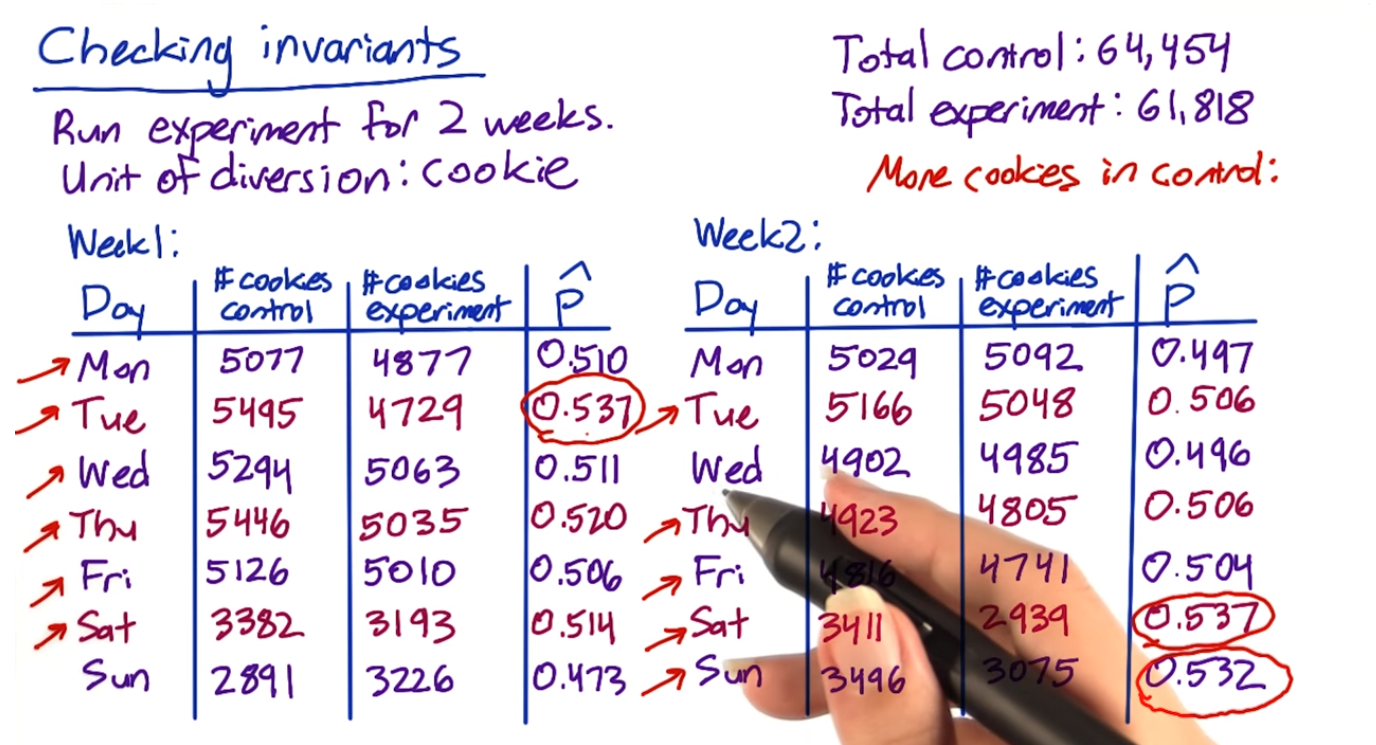 Checking invariants
Run experiment for 2 weeks.
Unit of diversion: cookie
Total control: 64,454
Total experiment: 61,818
More cookies in control:
Week1:
Day #cookies control #cookies experiment p̂
Mon 5077 4877 0.510
Tue 5495 4729 0.537
Wed 5294 5063 0.511
Thu 5446 5035 0.520
Fri 5126 5010 0.506
Sat 3382 3193 0.514
Sun 2891 3226 0.473
Week2:
Day #cookies control #cookies experiment p̂
Mon 5029 5092 0.497
Tue 5166 5048 0.506
Wed 4902 4985 0.496
Thu 4923 4805 0.506
Fri 4816 4741 0.504
Sat 3411 2939 0.537
Sun 3496 3075 0.532